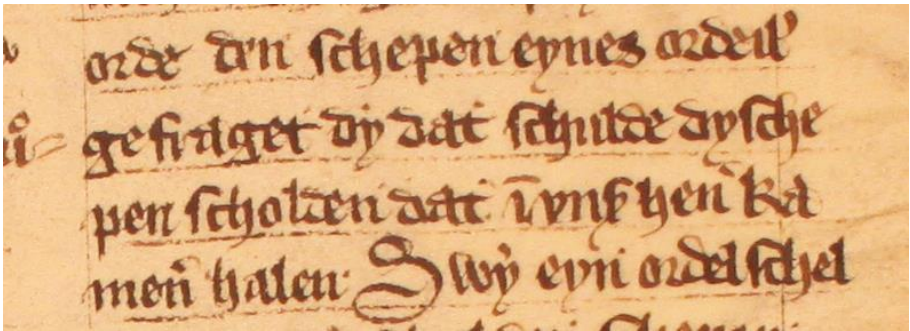 orde den schepen eynes ordeils
gefraget dy dat schulde dy sche
pen scholden dat in vnser heren ka
meren halen Swy eyn ordel schel